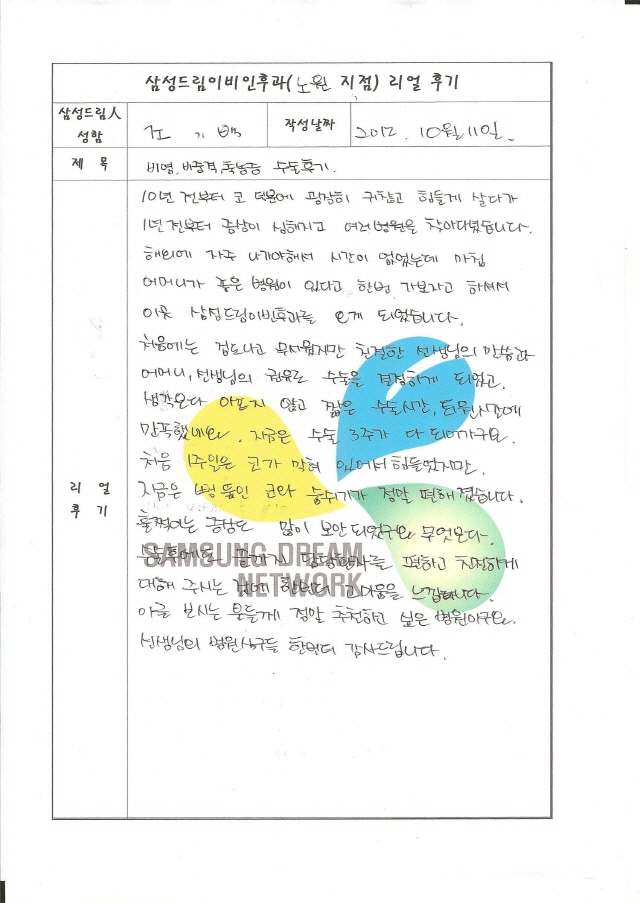 삼성드림이비인후과(노원 지점) 리얼 후기
삼성드림人 성함
조 기 백
작성날짜
2012. 10월 11일.
제 목
비염, 비중격, 축농증 수술후기.
리 얼 후 기
10년 전부터 코 때문에 굉장히 귀찮고 힘들게 살다가
1년 전부터 증상이 심해지고 여러병원을 찾아다녔습니다.
해외에 자주 나가야해서 시간이 없었는데 마침
어머니가 좋은 병원이 있다고 한번 가보자고 하셔서
이곳 삼성드림이빈후과를 오게 되었습니다.
처음에는 겁도나고 무서웠지만 친절한 선생님의 말씀과
어머니, 선생님의 권유로 수술을 결정하게 되었고.
생각보다 아프지 않고 짧은 수술시간, 입원시간에
만족했네요. 지금은 수술 3주가 다 되어가구요.
처음 1주일은 코가 막혀 있어서 힘들었지만.
지금은 뻥 뚫인 코와 숨쉬기가 정말 편해졌습니다.
훌쩍이는 증상도 많이 보안되었구요 무엇보다.
끝까지 담당환자를 편하고 친절하게
대해 주시는 것에 한번더 고마움을 느낍니다.
이글 보시는 분들께 정말 추천하고 싶은 병원이구요.
선생님외 병원식구들 한번더 감사드립니다.
SAMSUNG DREAM
NETWORK